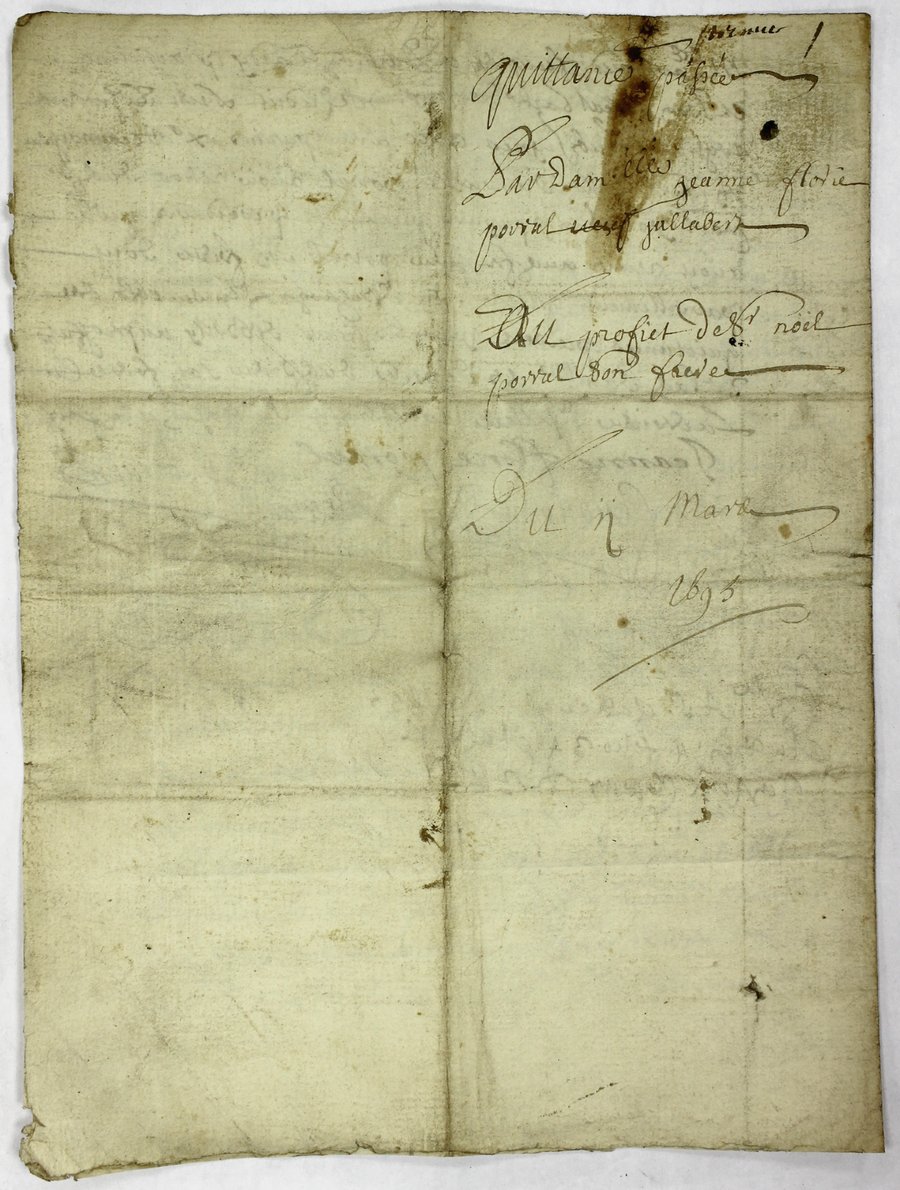 1
Quittance passée
Par Dam.elle jeanne florie
porral jullabert
Au profict de Sr noël
porral son frere
Du ij Mars
1695